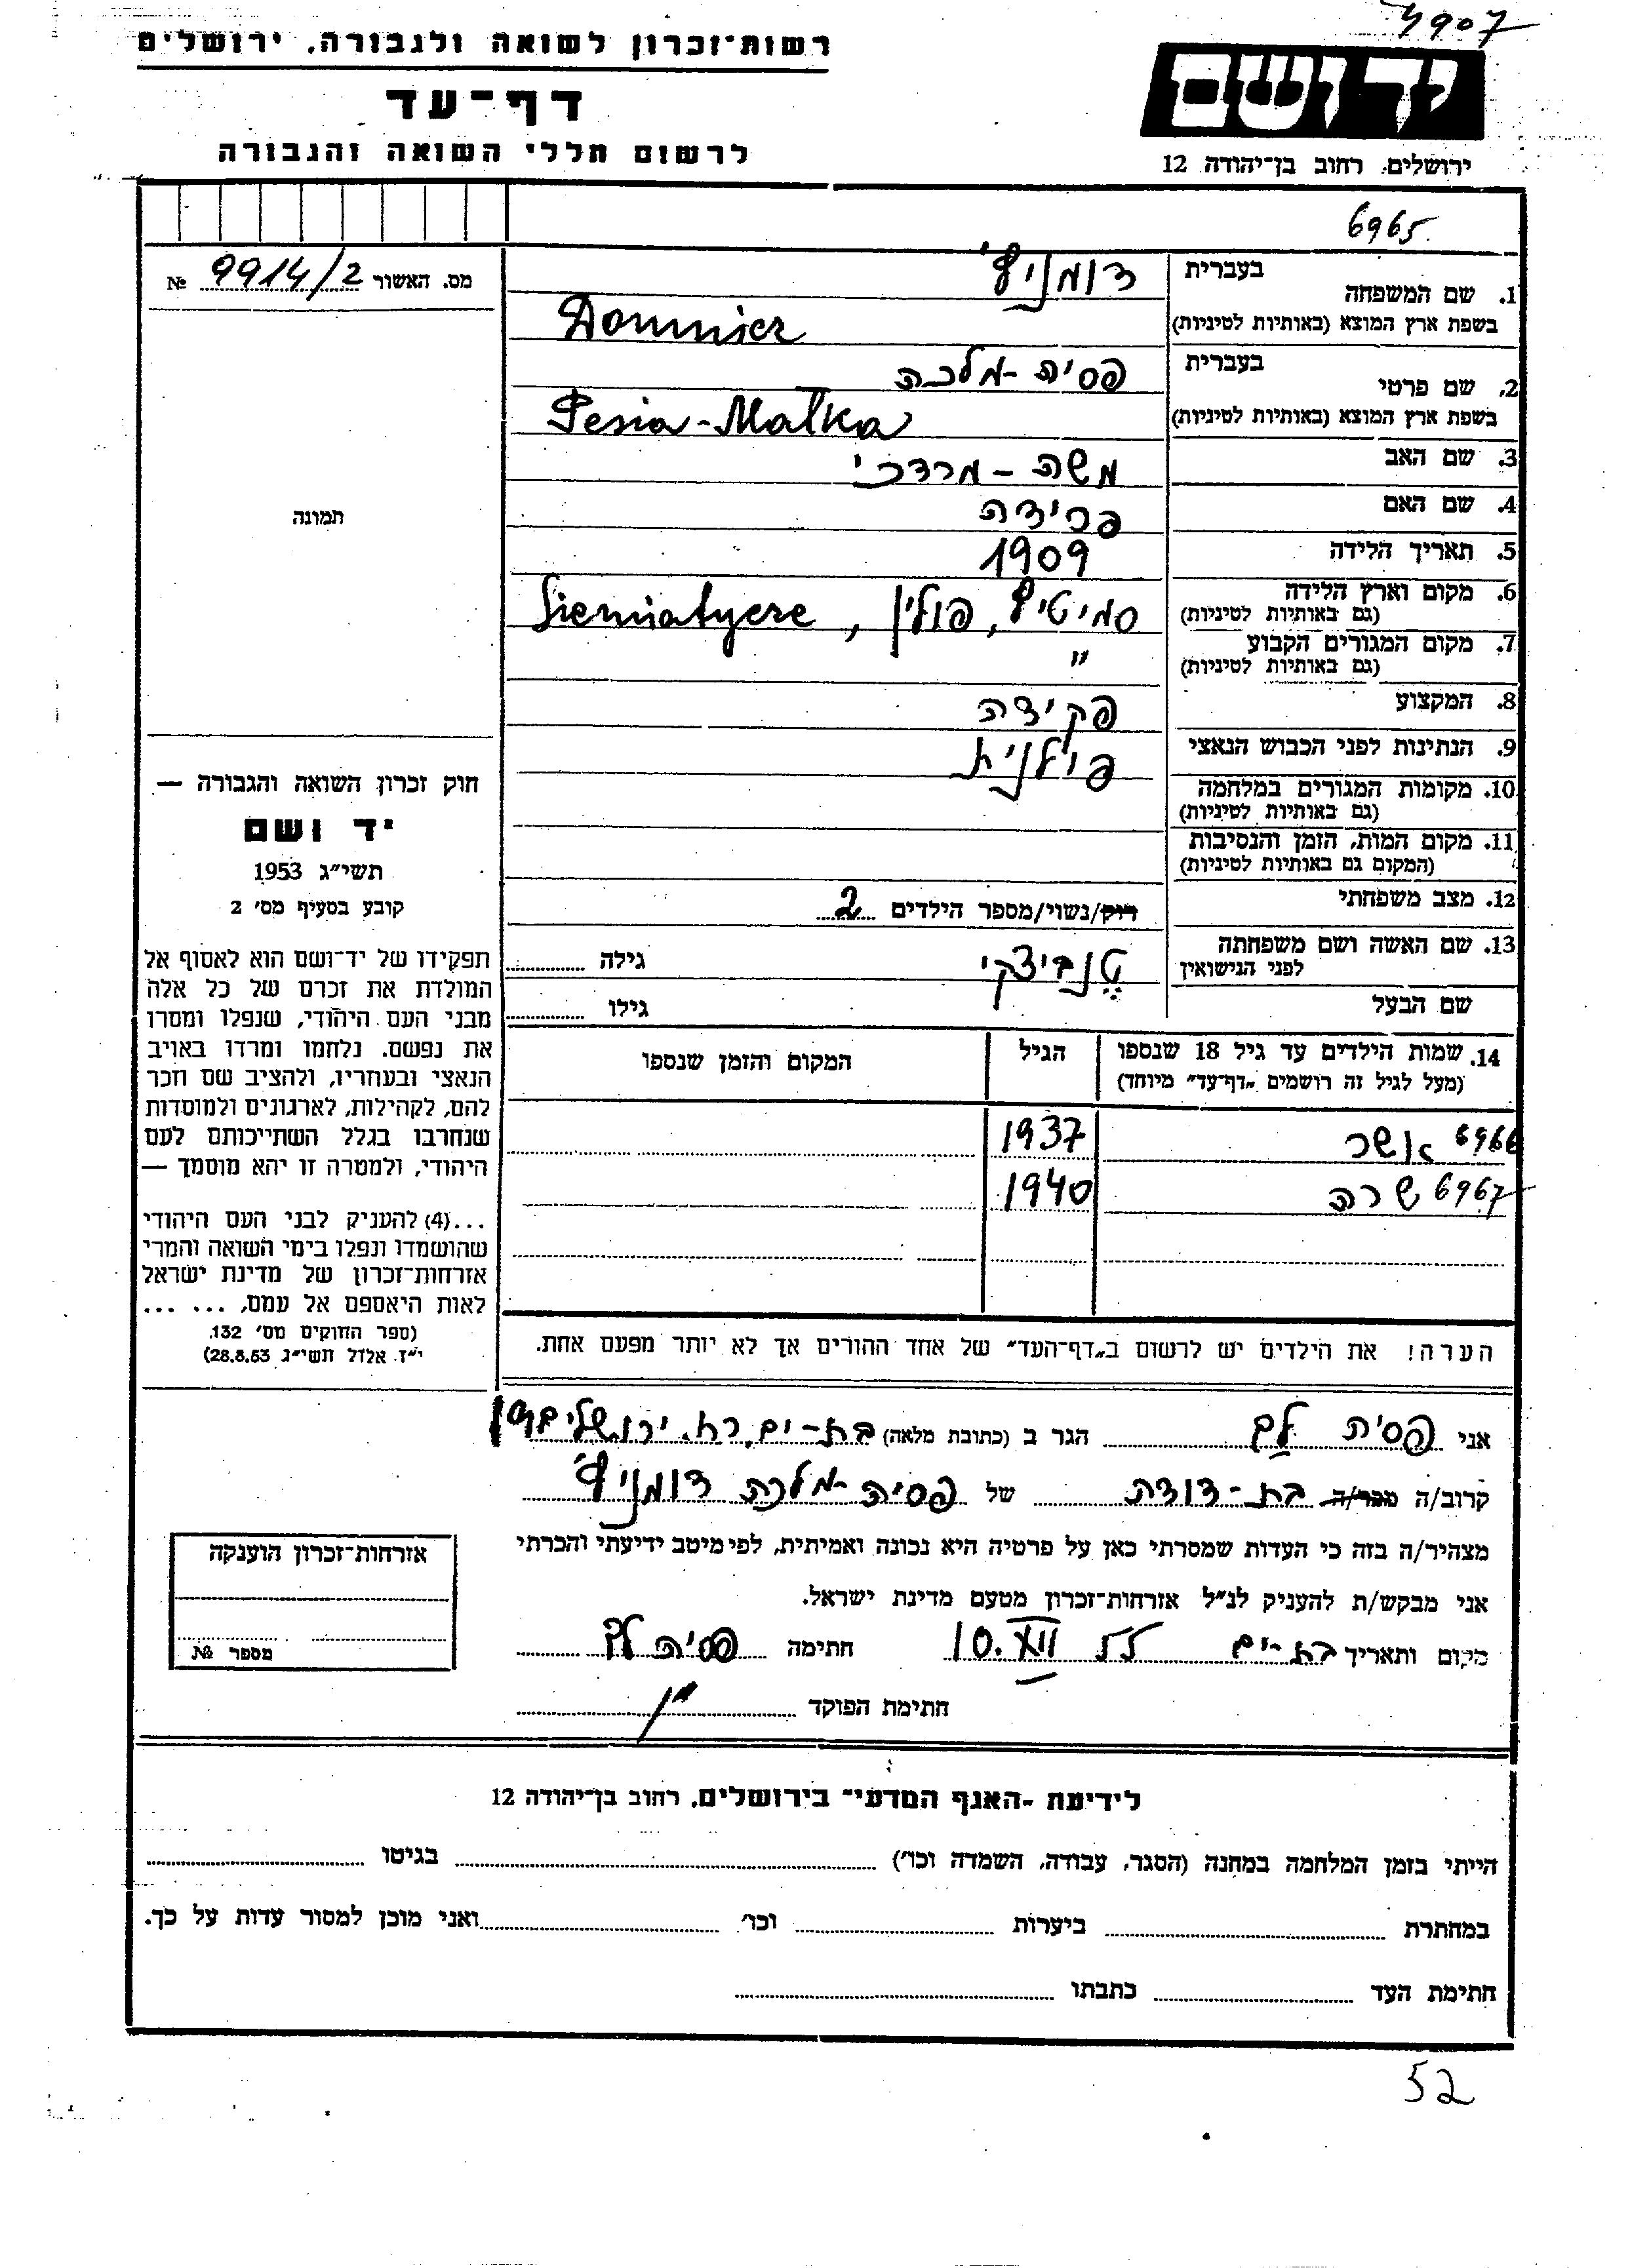 4907
רשות־זכרון לשואה ולגבורה, ירושלים
ידושם
דף־עד
לרשום חללי השואה והגבורה
ירושלים, רחוב בן־יהודה 12
6965
מס. האשור 9914/2 №
1. שם המשפחה בעברית דומניץ'
בשפת ארץ המוצא (באותיות לטיניות) Domnicz
2. שם פרטי בעברית פסיה-מלכה
בשפת ארץ המוצא (באותיות לטיניות) Pesia-Malka
3. שם האב משה-מרדכי
4. שם האם פרידה
תמונה
5. תאריך הלידה 1909
6. מקום וארץ הלידה (גם באותיות לטיניות) סמיטיץ', פולין, Siemiatycze
7. מקום המגורים הקבוע (גם באותיות לטיניות) "
8. המקצוע פקידה
9. הנתינות לפני הכבוש הנאצי פולנית
10. מקומות המגורים במלחמה (גם באותיות לטיניות)
11. מקום המות, הזמן והנסיבות (המקום גם באותיות לטיניות)
12. מצב משפחתי רוק/נשוי/מספר הילדים 2
13. שם האשה ושם משפחתה לפני הנישואין טנביצקי גילה
שם הבעל גילו
14. שמות הילדים עד גיל 18 שנספו הגיל המקום והזמן שנספו
(מעל לגיל זה רושמים „דף־עד" מיוחד)
6966 אשר 1937
6967 שרה 1940
הערה! את הילדים יש לרשום ב„דף־העד" של אחד ההורים אך לא יותר מפעם אחת.
חוק זכרון השואה והגבורה —
יד ושם
תשי"ג 1953
קובע בסעיף מס' 2
תפקידו של יד־ושם הוא לאסוף אל
המולדת את זכרם של כל אלה
מבני העם היהודי, שנפלו ומסרו
את נפשם, נלחמו ומרדו באויב
הנאצי ובעוזריו, ולהציב שם וזכר
להם, לקהילות, לארגונים ולמוסדות
שנחרבו בגלל השתייכותם לעם
היהודי, ולמטרה זו יהא מוסמך —
...(4) להעניק לבני העם היהודי
שהושמדו ונפלו בימי השואה והמרי
אזרחות־זכרון של מדינת ישראל
לאות היאספם אל עמם, ... ...
(ספר החוקים מס' 132,
י"ז אלול תשי"ג 28.8.53)
אני פסיה לב הגר ב (כתובת מלאה) בת-ים, רח. ירושלים 19
קרוב/ה מכר/ה בת-דודה של פסיה-מלכה דומניץ'
מצהיר/ה בזה כי העדות שמסרתי כאן על פרטיה היא נכונה ואמיתית, לפי מיטב ידיעתי והכרתי
אני מבקש/ת להעניק לנ"ל אזרחות־זכרון מטעם מדינת ישראל.
מקום ותאריך בת-ים 10. XII 55 חתימה פסיה לב
חתימת הפוקד
אזרחות־זכרון הוענקה
מספר №
לידיעת „האגף המדעי" בירושלים, רחוב בן־יהודה 12
הייתי בזמן המלחמה במחנה (הסגר, עבודה, השמדה וכו') בגיטו
במחתרת ביערות וכו' ואני מוכן למסור עדות על כך.
חתימת העד כתבתו
52